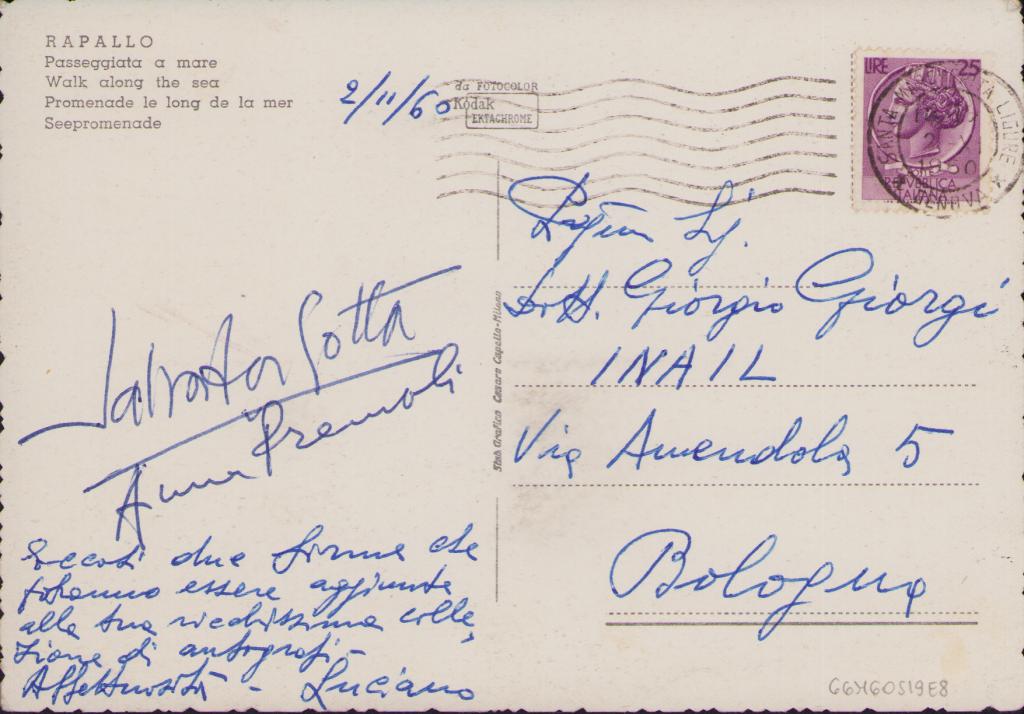 RAPALLO
Passeggiata a mare
Walk along the sea
Promenade le long de la mer
Seepromenade
2/11/60
da FOTOCOLOR
Kodak
EKTACHROME
LIRE 25
SANTA MARGHERITA LIGURE
1960
REPVBBLICA
ITALIANA
GENOVA
Salvator Gotta
Anna Premoli
Eccoti due firme che
potranno essere aggiunte
alla tua ricchissima colle,
zione di autografi -
Affettuosità - Luciano
Stab. Grafico Cesare Capello-Milano
Sig.
Dott. Giorgio Giorgi
INAIL
Via Amendola 5
Bologna